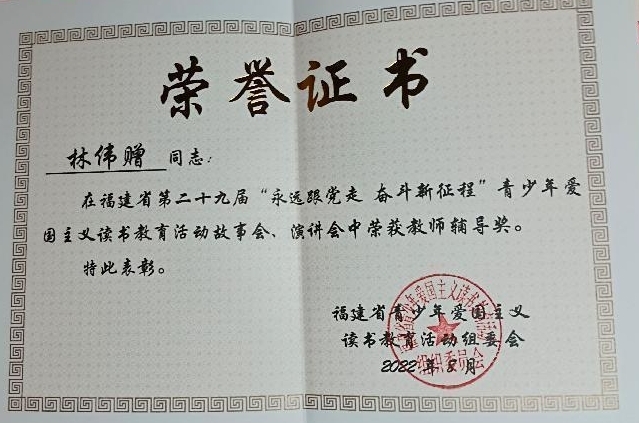 荣誉证书
林伟赠 同志：
在福建省第二十九届“永远跟党走 奋斗新征程”青少年爱
国主义读书教育活动故事会、演讲会中荣获教师辅导奖。
特此表彰。
福建省青少年爱国主义
读书教育活动组委会
2022年8月